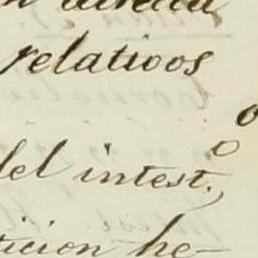 relativos
o
o
del intest.,
ticion he-